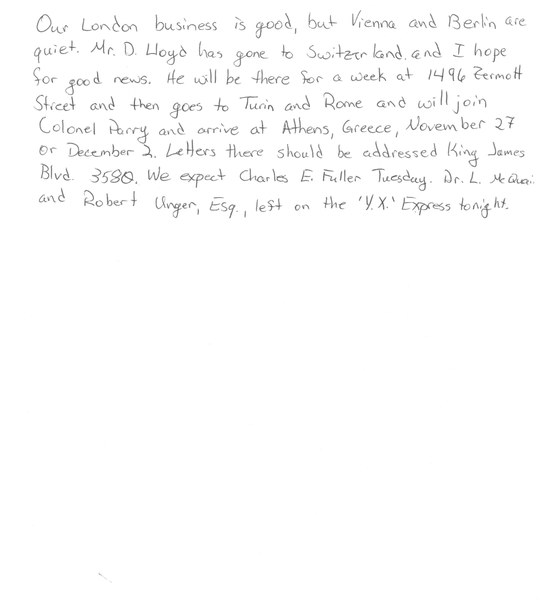 Our London business is good, but Vienna and Berlin are
quiet. Mr. D. Lloyd has gone to Switzerland, and I hope
for good news. He will be there for a week at 1496 Zermott
Street and then goes to Turin and Rome and will join
Colonel Parry and arrive at Athens, Greece, November 27
or December 2. Letters there should be addressed King James
Blvd. 3580. We expect Charles E. Fuller Tuesday. Dr. L.
and Robert Unger, Esq., left on the 'Y.X.' Express tonight.